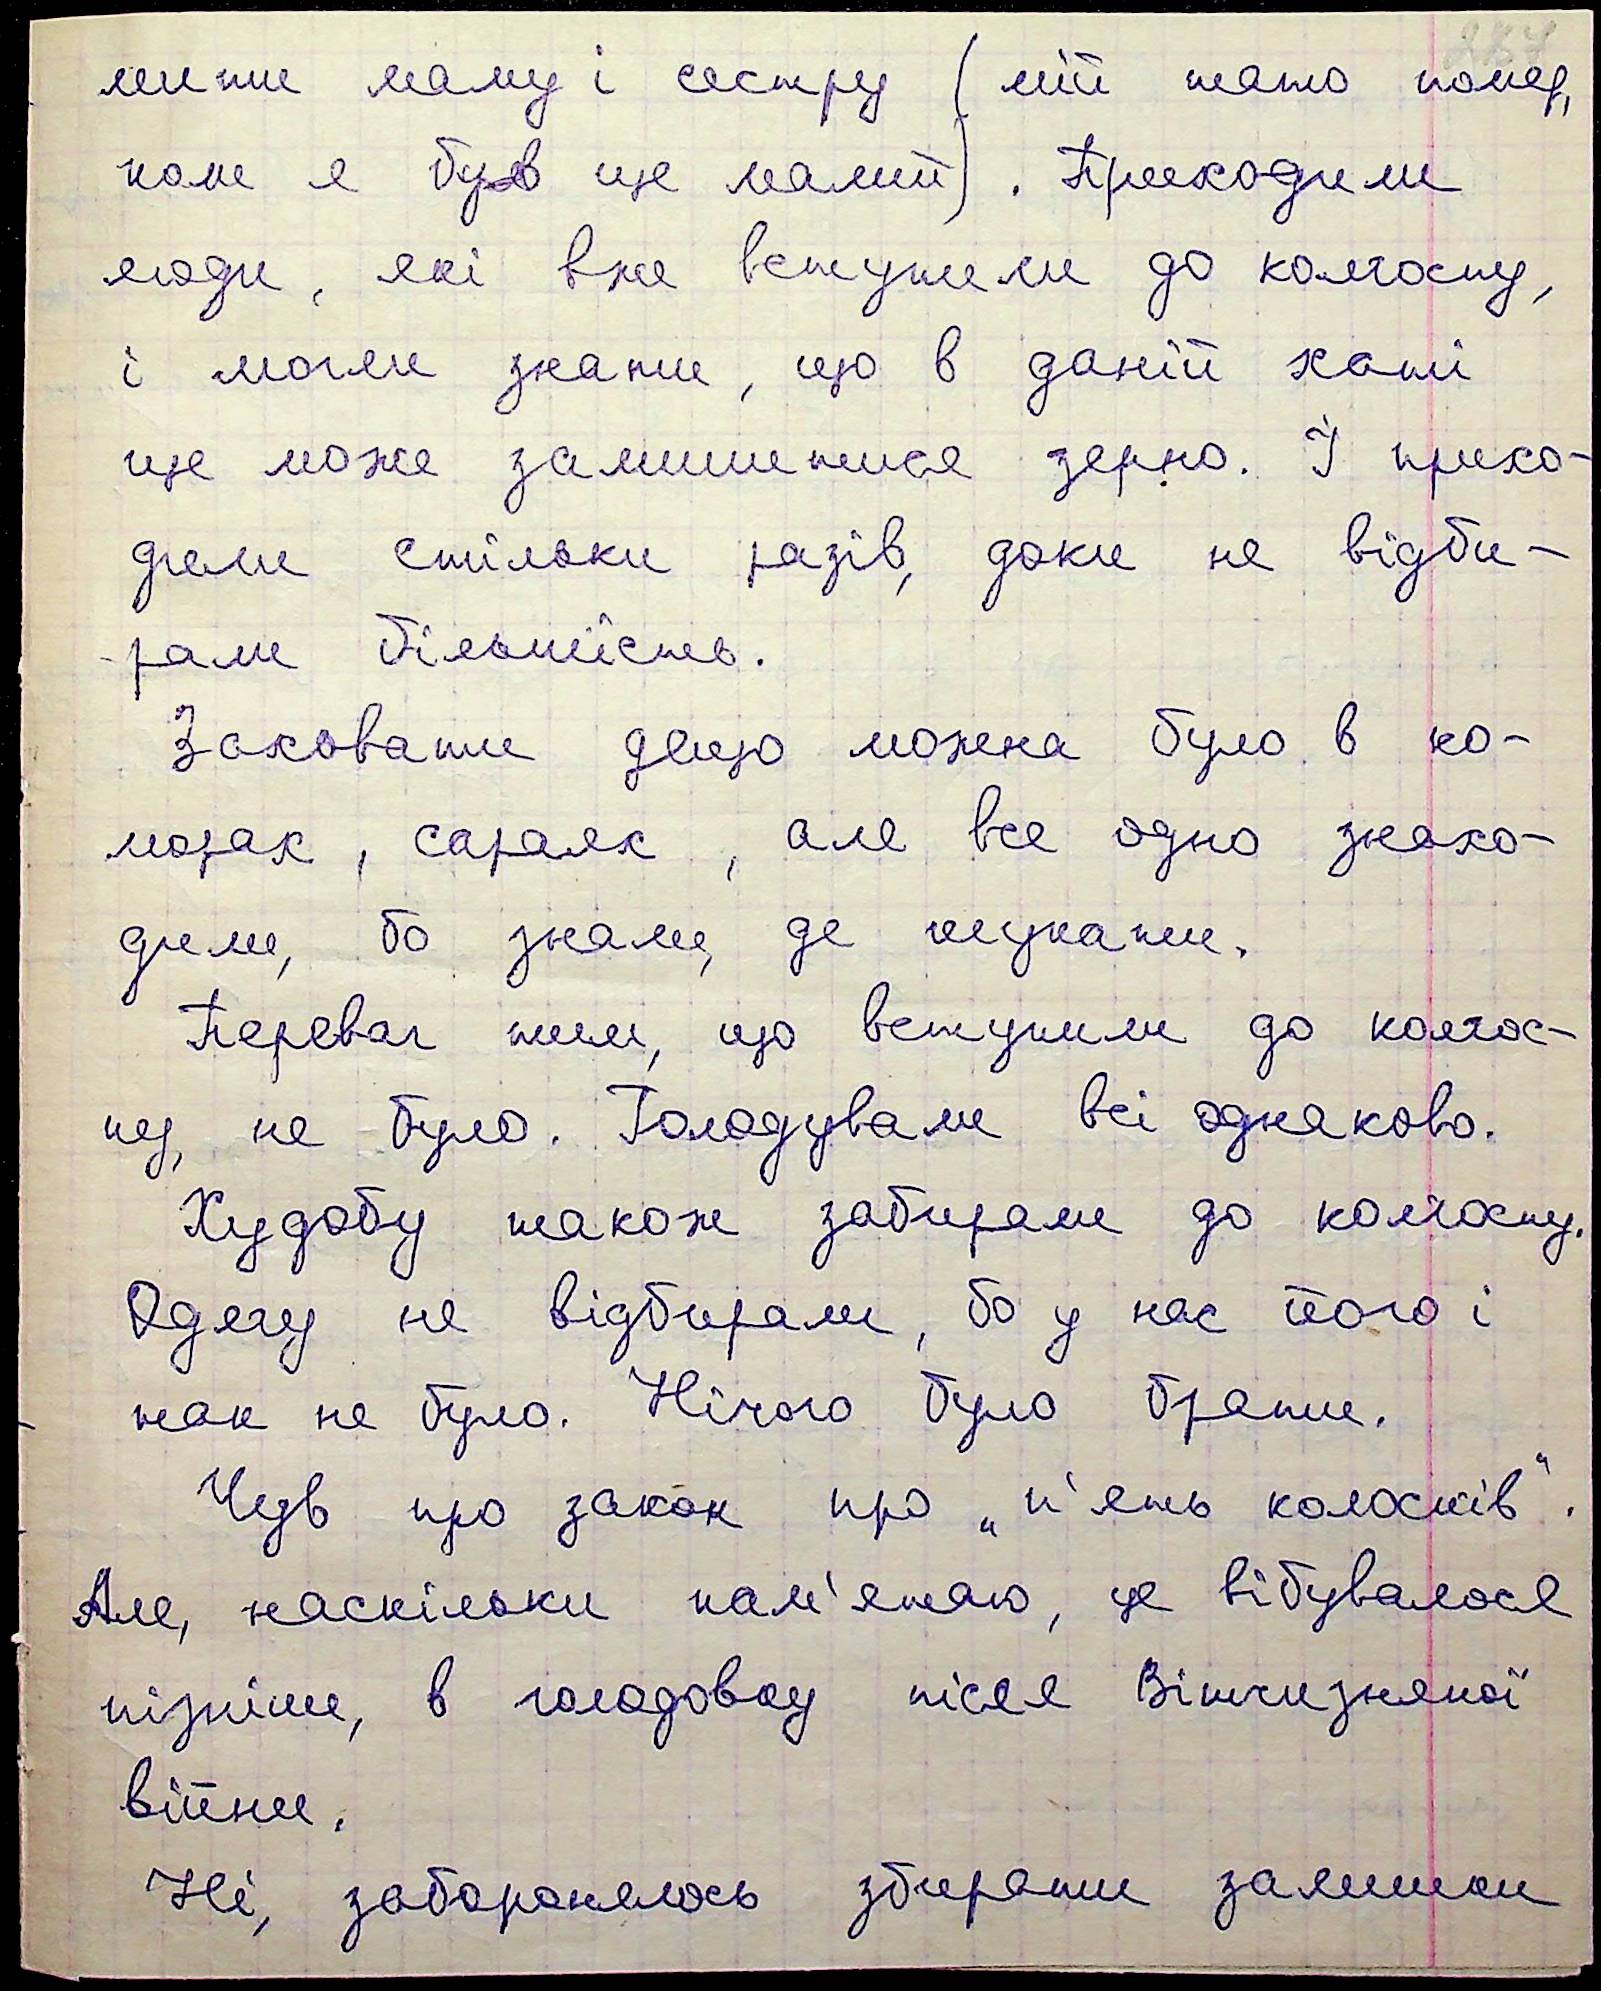 мити маму і сестру (мій тато помер,
коли я був ще малий). Приходили
люди, які вже вступили до колгоспу,
і могли знати, що в даній хаті
ще може залишитися зерно. І прихо-
дили стільки разів, доки не відби-
рали більшість.
Заховати дещо можна було в ко-
морах, сараях, але все одно знахо-
дили, бо знали, де шукати.
Переваг тим, що вступили до колгос-
пу, не було. Голодували всі однаково.
Худобу також забирали до колгоспу.
Одягу не відбирали, бо у нас його і
так не було. Нічого було брати.
Чув про закон про „п'ять колосків".
Але, наскільки пам'ятаю, це вібувалося
пізніше, в голодовку після Вітчизняної
війни.
Ні, заборонялось збирати залишки